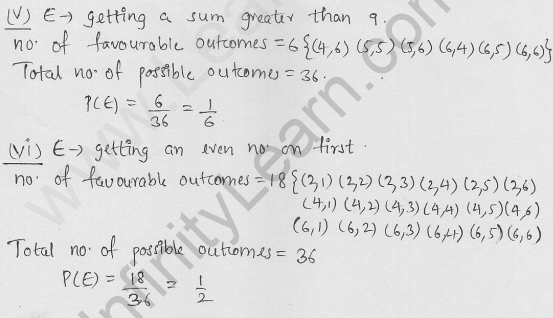 (V) E→ getting a sum greater than 9.
no. of favourable outcomes = 6 {(4,6) (5,5) (5,6) (6,4) (6,5) (6,6)}
Total no. of possible outcomes = 36.
P(E) = 6/36 = 1/6
(vi) E→ getting an even no. on first.
no. of favourable outcomes = 18 {(2,1) (2,2) (2,3) (2,4) (2,5) (2,6)
(4,1) (4,2) (4,3) (4,4) (4,5) (4,6)
(6,1) (6,2) (6,3) (6,4) (6,5) (6,6)
Total no. of possible outcomes = 36
P(E) = 18/36 = 1/2
InfinityLearn.com